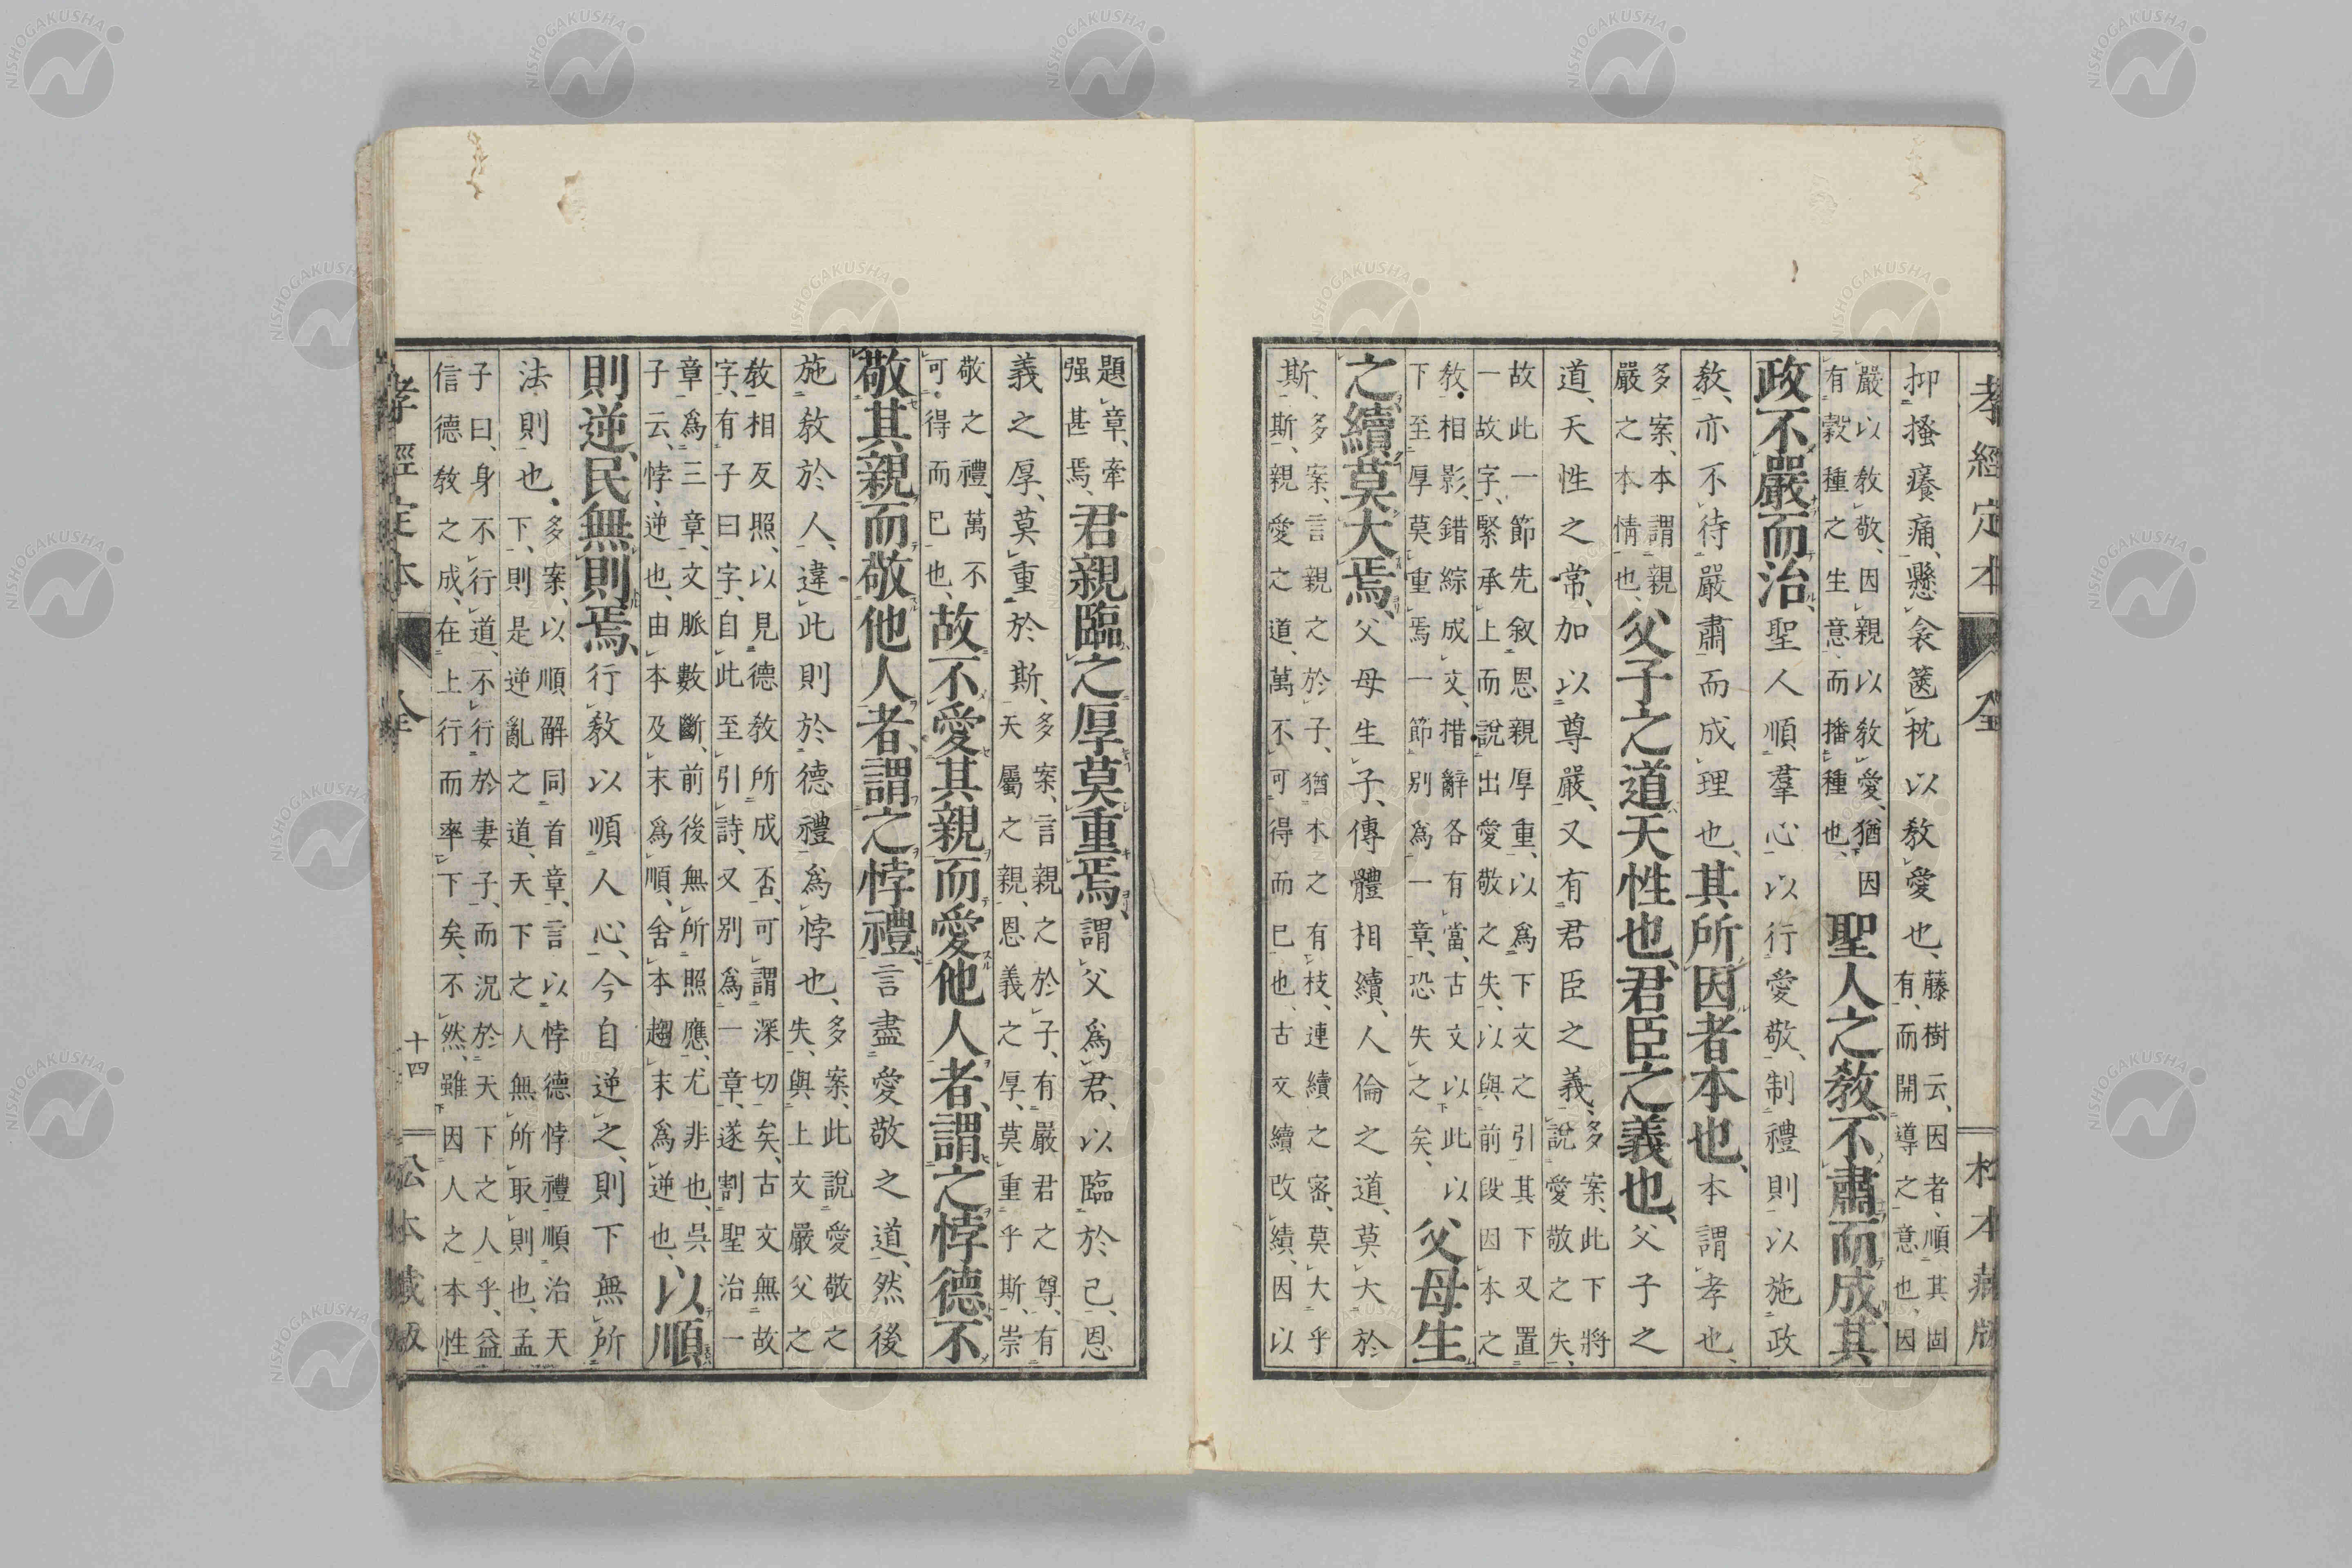 孝經定本 全 松本藏版
抑搔癢痛、懸衾篋枕以敎愛也、藤樹云、因者、順其固
有、而開導之意也、因
嚴以敎敬、因親以敎愛、猶因
有穀種之生意、而播種也、聖人之敎、不肅而成、其
政不嚴而治、聖人順羣心以行愛敬、制禮則以施政
敎、亦不待嚴肅而成理也、其所因者本也、本謂孝也、
多案、本謂親
嚴之本情也、父子之道天性也、君臣之義也、父子之
道、天性之常、加以尊嚴、又有君臣之義、多案、此下將
說愛敬之失、
故此一節先叙恩親厚重、以爲下文之引其下又置
一故字、緊承上而說出愛敬之失、以與前段因本之
敎相影、錯綜成文、措辭各有當、古文以此以
下至厚莫重焉一節別爲一章、恐失之矣、父母生
之續、莫大焉、父母生子、傳體相續、人倫之道、莫大於
斯、多案、言親之於子、猶木之有枝、連續之密、莫大乎
斯、親愛之道、萬不可得而已也、古文續改績、因以
題章、牽
强甚焉、君親臨之厚莫重焉、謂父爲君、以臨於己、恩
義之厚、莫重於斯、多案、言親之於子、有嚴君之尊、有
天屬之親、恩義之厚、莫重乎斯、崇
敬之禮、萬不
可得而已也、故不愛其親而愛他人者、謂之悖德、不
敬其親而敬他人者、謂之悖禮、言盡愛敬之道、然後
施敎於人、違此則於德禮爲悖也、多案、此說愛敬之
失、與上文嚴父之
敎相反照、以見德敎所成否、可謂深切矣、古文無故
字、有子曰字、自此至引詩、又別爲一章、遂割聖治一
章爲三章、文脈數斷、前後無所照應、尤非也、吳
子云、悖、逆也、由本及末爲順、舍本趨末爲逆也、以順
則逆、民無則焉、行敎以順人心、今自逆之、則下無所
法則也、多案、以順解同首章、言以悖德悖禮順治天
下、則是逆亂之道、天下之人無所取則也、孟
子曰、身不行道、不行於妻子、而況於天下之人乎、益
信德敎之成、在上行而率下矣、不然、雖因人之本性
孝經定本 全 十四 松本藏版
NISHOGAKUSHA